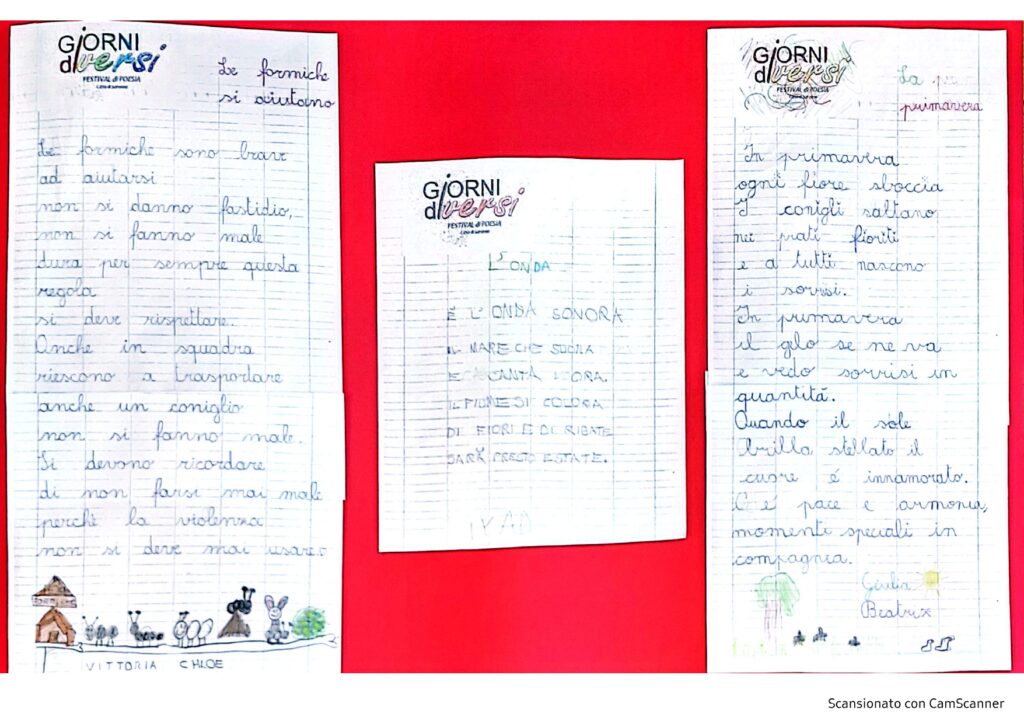 GIORNI
diversi
FESTIVAL di POESIA
Le formiche
si aiutano
Le formiche sono brave
ad aiutarsi
non si danno fastidio,
non si fanno male
dura per sempre questa
regola
si deve rispettare.
Anche in squadra
riescono a trasportare
anche un coniglio
non si fanno male.
Si devono ricordare
di non farsi mai male
perchè la violenza
non si deve mai usare.
VITTORIA CHLOE
GIORNI
diversi
FESTIVAL di POESIA
L'ONDA
È L'ONDA SONORA
IL MARE CHE SUONA
E CANTA ORA
IL FIUME SI COLORA
DI FIORI E DI RIBATE
SARÀ PRESTO ESTATE.
GIORNI
diversi
FESTIVAL di POESIA
La
primavera
In primavera
ogni fiore sboccia
I conigli saltano
nei prati fioriti
e a tutti nascono
i sorrisi.
In primavera
il gelo se ne va
e vedo sorrisi in
quantitá.
Quando il sole
brilla stellato il
cuore é innamorato.
C'é pace e armonia,
momenti speciali in
compagnia.
Giulia
Beatrix
Scansionato con CamScanner